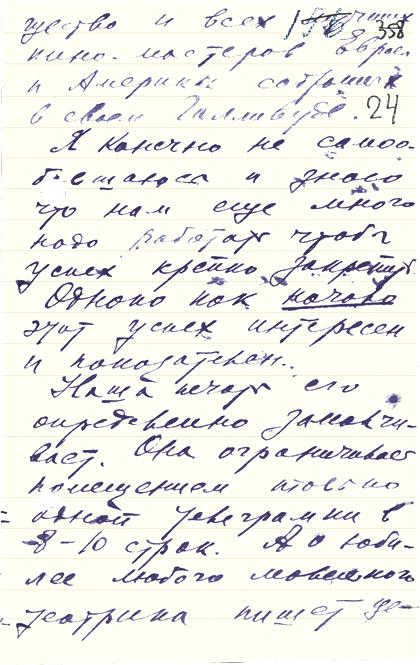 щество и всех лучших 358
кино-мастеров Европ
и Америки собранных
в своем Голливуде. 24
Я конечно не самоо-
больщаюсь и знаю
что нам еще много
надо работать чтобы
успех крепко закрепить
Однако как начало
этот успех интересен
и показателен.
Наша печать его
определенно замалчи-
вает. Она ограничивает
помещением только
одной телеграмки в
8-10 строк. А о юби-
лее любого
театрика пишет це-